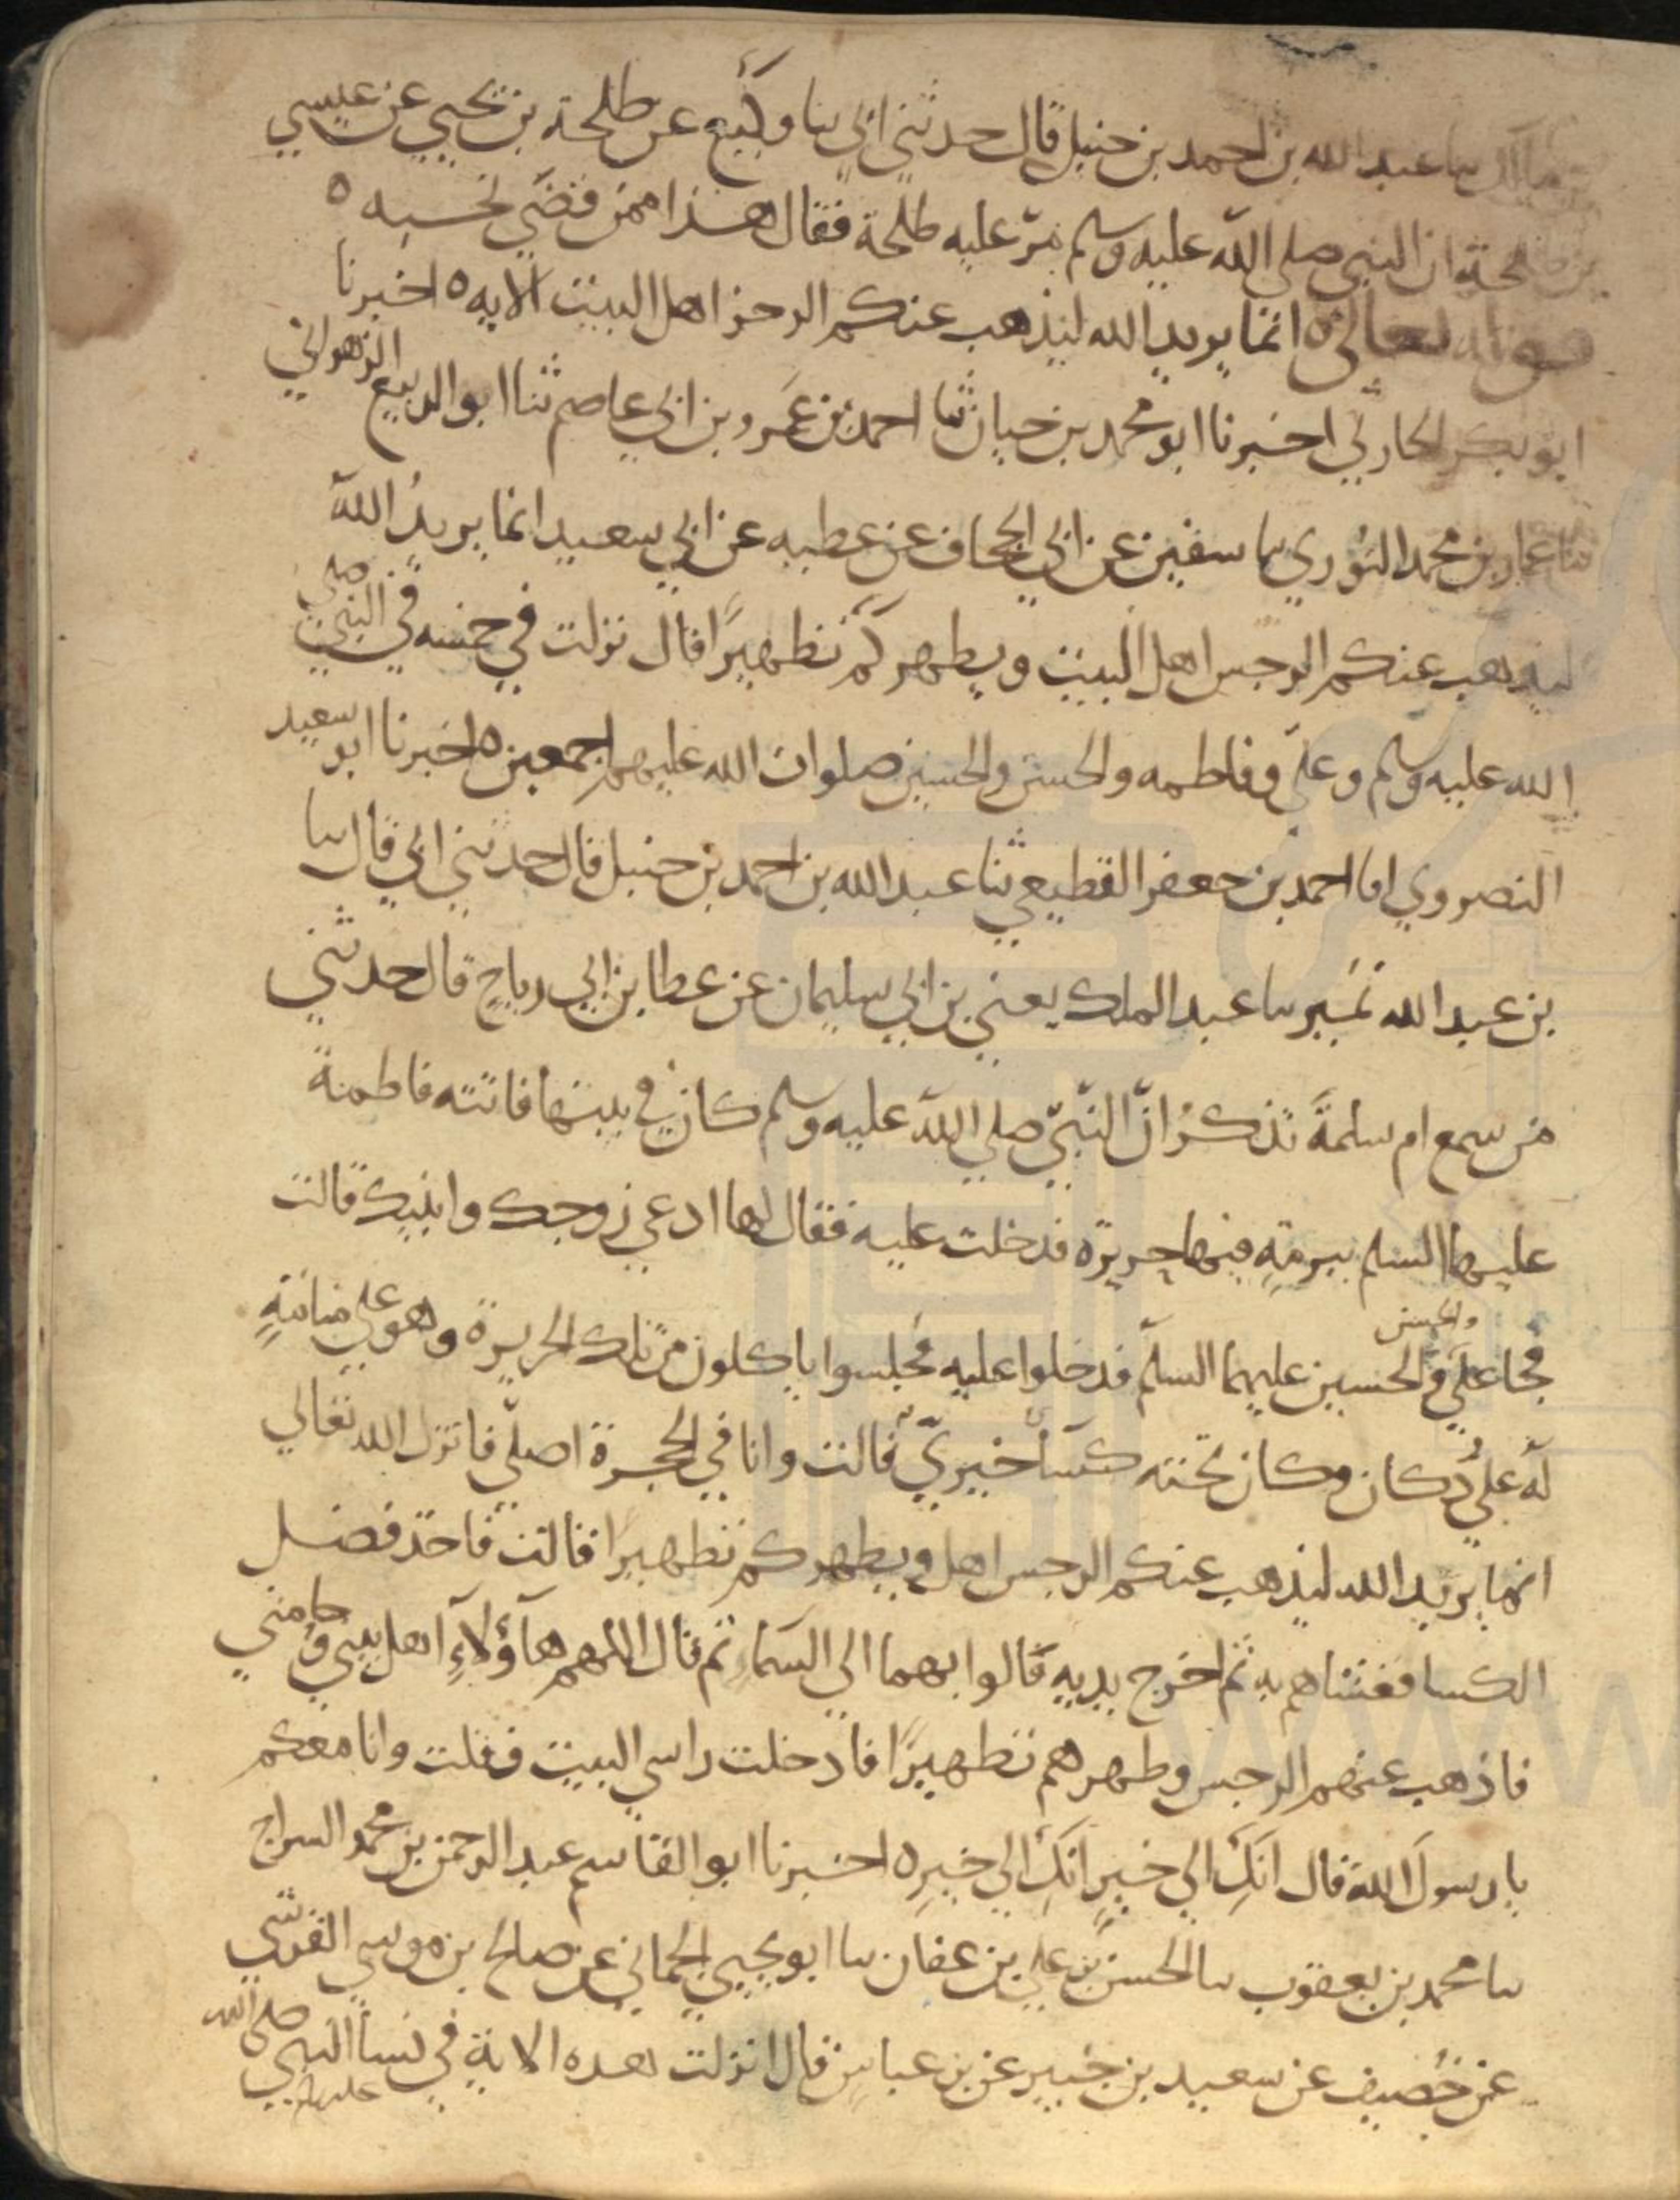 بن مالك سا عبد الله بن احمد بن حنبل قال حدثني ابي سا وكيع عن طلحة بن يحيي عن عيسي
بن طلحة ان النبي صلي الله عليه وسلم مرّ عليه طلحة فقال هذا ممن قضي نحبه ٥
قوله تعالى ٥ انما يريد الله ليذهب عنكم الرجز اهل البيت الايه ٥ اخبرنا
ابو بكر الحارثي اخبرنا ابو محمد بن حيان ثنا احمد بن عمرو بن ابي عاصم ثنا ابو الربيع الزهراني
ثنا عمار بن محمد الثوري سا سفين عن ابي الجحاف عن عطيه عن ابي سعيد انما يريد الله
ليذهب عنكم الرجس اهل البيت ويطهركم تطهيرًا قال نزلت في خمسه في النبي صلي
الله عليه وسلم وعلي وفاطمه والحسن والحسين صلوات الله عليهم اجمعين ٥ اخبرنا ابو سعيد
النصروي انا احمد بن جعفر القطيعي ثنا عبد الله بن احمد بن حنبل قال حدثني ابي قال سا
بن عبد الله نمير سا عبد الملك يعني بن ابي سليمان عن عطا بن ابي رباح قال حدثني
من سمع ام سلمة تذكر انّ النبّي صلي الله عليه وسلم كان في بيتها فاتته فاطمة
عليها السلم ببرمةٍ فيها حريرة فدخلت عليه فقال لها ادعي زوجك وابنيك قالت
فجا علي والحسن والحسين عليهما السلم فدخلوا عليه فجلسوا ياكلون من تلك الحريرة وهو علي منامةٍ
له علي دكان وكان تحته كسأ خيبريّ قالت وانا في الحجرة اصلّي فانزل الله تعالي
انما يريد الله ليذهب عنكم الرجس اهل ويطهركم تطهيرًا قالت فاخذ فضل
الكسا فغشاهم به ثم اخرج يديه قالوا بهما الي السماء ثم قال اللهم هآؤلآءِ اهل بيتي وحامتي
فاذهب عنهم الرجس وطهرهم تطهيرًا فادخلت راسي البيت فقلت وانا معكم
يا رسول الله قال انكِ الي خيرٍ انكِ الي خيرٍ ٥ اخبرنا ابو القاسم عبد الرحمن بن محمد السراج
سا محمد بن يعقوب سا الحسن بن علي بن عفان سا ابو يحيي الحماني عن صالح بن موسي القرشي
عن خُصيف عن سعيد بن جبير عن بن عباس قال انزلت هده الاية في نسأ النبي صلي الله عليه وسلم